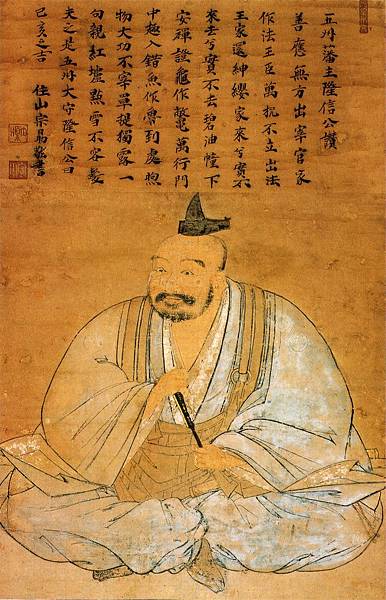 五州藩主隆信公讚
善應無方出宰官家
作法王臣萬机不立出法
王家還紳纓家来兮實不
来去兮實不去碧油幢下
安禅證龜作鼈萬行門
中趣入錯魚作魯到處煦
物大功不宰單提獨露一
句親紅爐點雪不容髪
夫之是五州大守隆信公曰
己亥之吉 住山宗易敬書